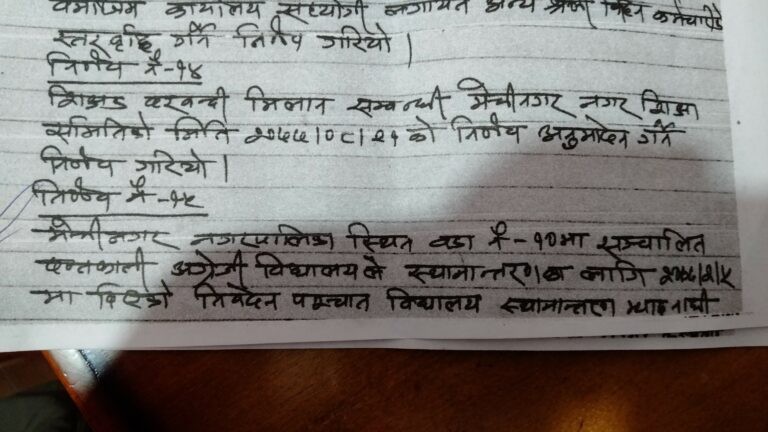 कार्यालय सहयोगी लगायत अन्य श्रेणी विहिन
स्तरवृद्धि गर्ने निर्णय गरियो |
निर्णय नं-१४
शिक्षक दरवन्दी मिलान सम्वन्धी मेचीनगर नगर शिक्षा
समितिको मिति को निर्णय अनुमोदन गर्ने
निर्णय गरियो |
निर्णय नं-१५
मेचीनगर नगरपालिका स्थित वडा नं-१०मा सञ्चालित
अंग्रेजी विद्यालयले स्थानान्तरणका लागि
मा दिएको निवेदन पश्चात विद्यालय स्थानान्तरण